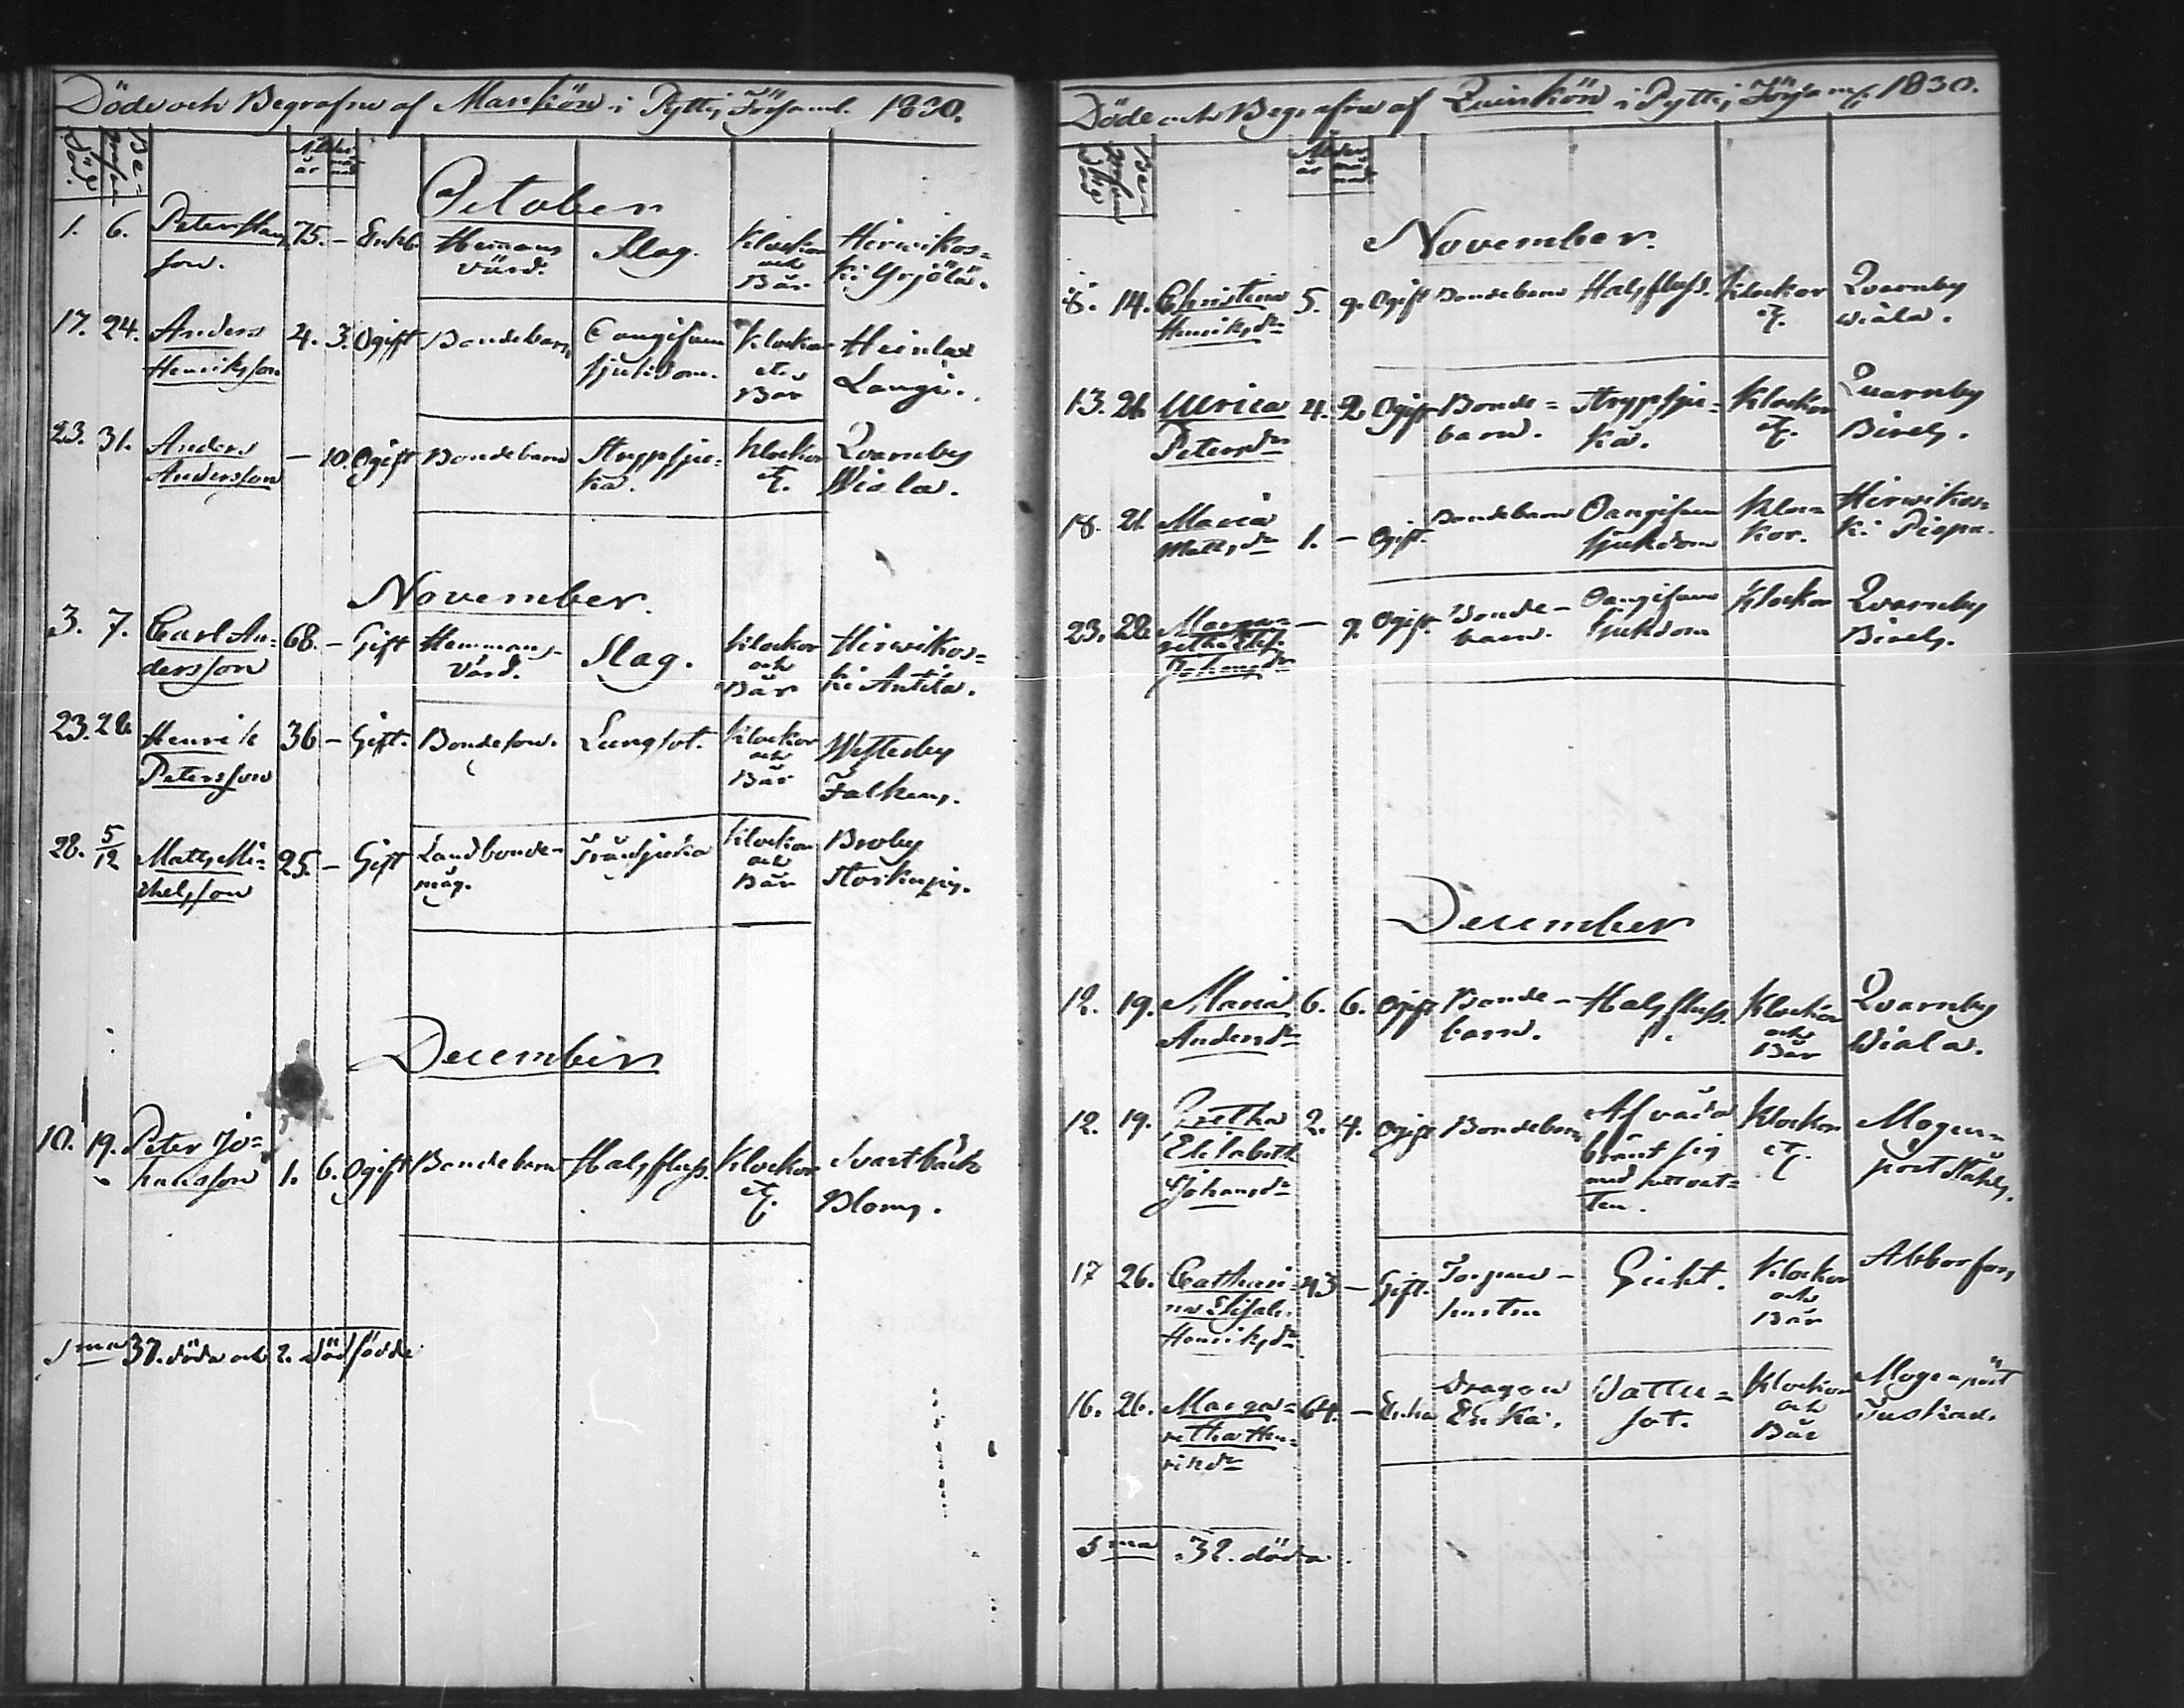 Döde och Begrafne af Mankön i Pyttis Församl. 1830.
Död. Be- grafne Ålder år mån
October
1. 6. Peter Hansson. 75. – Enkl. Hemmans värd. Slag. Klockor och Bår. Hirwikoski Yrjölä.
17. 24. Anders Henriksson 4. 3. Ogift Bondebarn Oangifven sjukdom. Klockor och Bår Heinlax Laugi.
23. 31. Anders Andersson – 10. Ogift Bondebarn Strypsjuka. Klockor etc. Qvarnby Wiala.
November.
3. 7. Carl Andersson 68. – Gift Hemmans- värd. Slag. Klockor och Bår Hirwikoski Anttila.
23. 28. Henrik Petersson 36 – Gift. Bondeson. Lungsot. Klockor och Bår Westerby Falkens.
28. 5/12 Matts Michelsson 25. – Gift Landbonde- måg. Tränsjuka Klockor och Bår Broby
December
10. 19. Peter Johansson 1. 6. Ogift Bondebarn Halsfluss. Klockor etc. Svartbäck Bloms.
Sma 37. döda och 2. dödfödde
Döde och Begrafne af Quinkön i Pyttis Församl. 1830.
Död Begrafne Ålder år månad
November.
8. 14. Christina Henriksdr 5. 9. Ogift Bondebarn Halsfluss. Klockor etc. Qvarnby Wiala.
13. 21. Ulrica Petersdr 4. 2. Ogift Bonde= barn. Strypsju= ka. Klockor etc. Quarnby Birels.
18. 21. Maria Mattsdr 1. – Ogift. Bondebarn Oangifven sjukdom Klockor. Hirwikoski Pispa.
23. 28. Margaretha Elis. Johansdr – 9. Ogift. Bonde- barn. Oangifven sjukdom Klockor Qvarnby Birels.
December
12. 19. Maria Andersdr 6. 6. Ogift Bonde- barn. Halsfluss. Klockor och Bår Qvarnby Wiala.
12. 19. Gretha Elisabeth Johansdr 2. 4. Ogift Bondebarn Af våda bränt sig med hett vatten. Klockor etc. Mogenpört Ståhls.
17 26. Catharina Elisab. Henriksdr 43 – Gift. Torpare- hustru Gickt. Klockor och Bår Abborfors
16. 26. Margaretha Henricsdr 64. – Enka Dragon Enka. Wattu= sot. Klockor och Bår Mogenpört Juskas.
Sma 32. döda